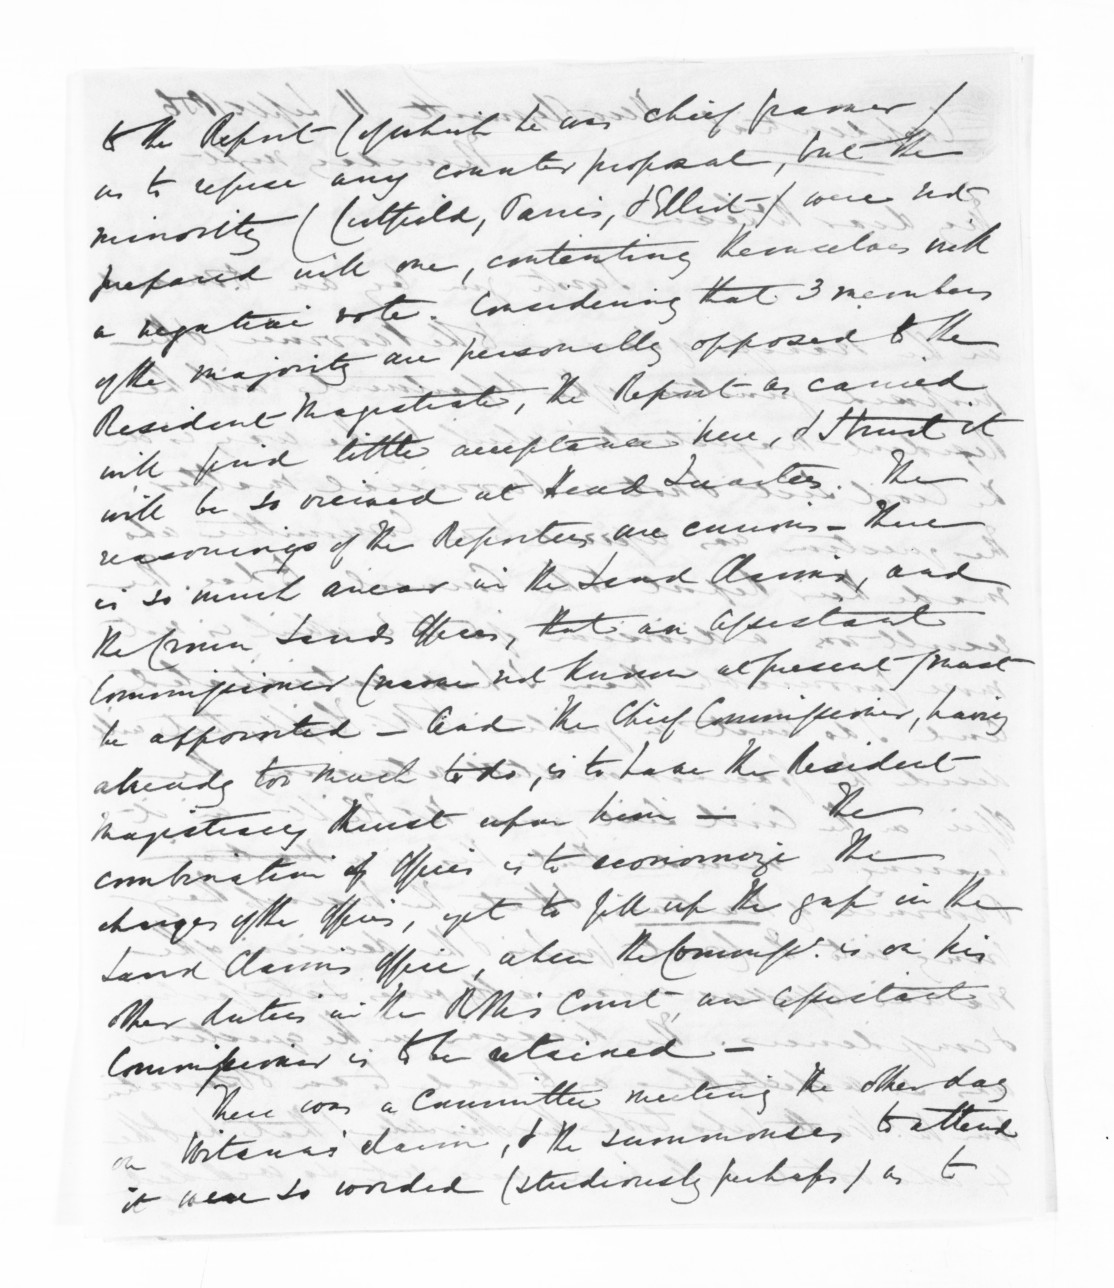 to the Report (of which he was chief framer)
as to refuse any counter proposal, but the
minority (Cutfield, Parris, & Elliot) were not
prepared with one, contenting themselves with
a negative vote. Considering that 3 members
of the majority are personally opposed to the
Resident Magistrate, the Report as carried
will find little acceptance here, & I trust it
will be so received at Head Quarters. The
reasonings of the Reporters are curious - There
is so much arrear in the Land Claims, and
the Crown Lands Offices, that an Assistant
Commissioner (name not known at present) must
be appointed - And the Chief Commissioner, having
already too much to do, is to have the Resident
Magistracy thrust upon him - The
combination of Offices is to economize the
charges of the Offices, yet to fill up the gap in the
Land Claims Office, when the Commissr. is on his
other duties in the RM's Court, an Assistant
Commissioner is to be retained -
There was a Committee meeting the other day
on Witana's claim, & the summonses to attend
it were so worded (studiously perhaps) as to